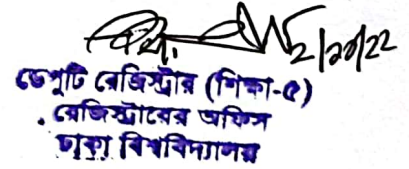 ২/১০/২২
ডেপুটি রেজিস্ট্রার (শিক্ষা-৫)
রেজিস্ট্রারের অফিস
ঢাকা বিশ্ববিদ্যালয়